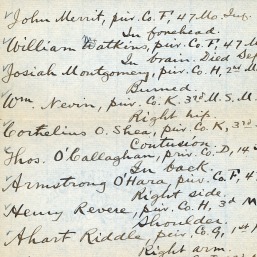 John Merrit, priv. Co. F, 47 Mo. Inf.
In forehead.
William Watkins, priv. Co. F, 47 M
In brain. Died Sep
Josiah Montgomery, priv. Co. H, 2nd M
Burned.
Wm. Nevin, priv. Co. K. 3rd M.S.M
Right hip.
Cornelius O. Shea, priv. Co. K, 3rd
Contusion.
Thos. O'Callaghan, priv. Co. D, 14
In back.
Armstrong O'Hara priv. Co. F, 4
Right side.
Henry Revere, priv. Co. H, 3d M
Shoulder.
Ahart Riddle, priv. Co. G, 1st
Right arm.